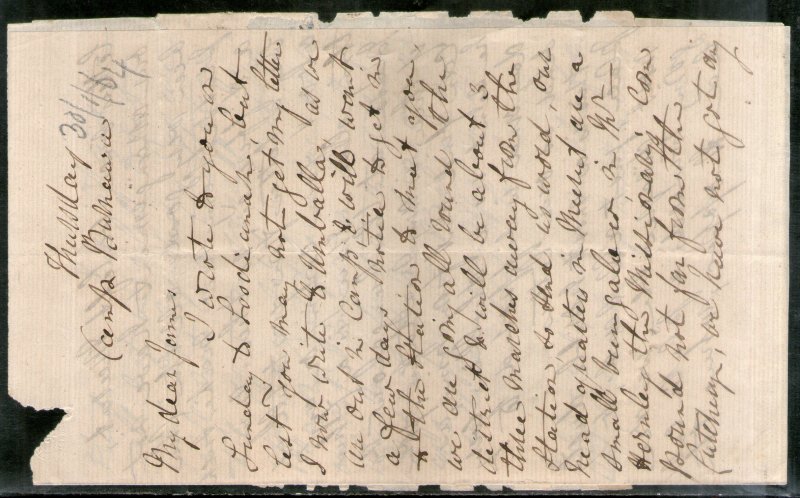 Thursday 30/1/84
Camp Buthawa
My dear James
I wrote to you on
Sunday to Loodianah, but
lest you may not get my letter
I now write to Umballa, as we
are out in Camp & will want
a few days notice to get in
to the Station to meet you
we are going all round the
district & will be about 3
three marches away from the
Station so send us word, our
head quarters in Meerut are a
small bungalow in Mr
Hornley the Missionary Com
pound not far from the
Cutchery, we have not got any